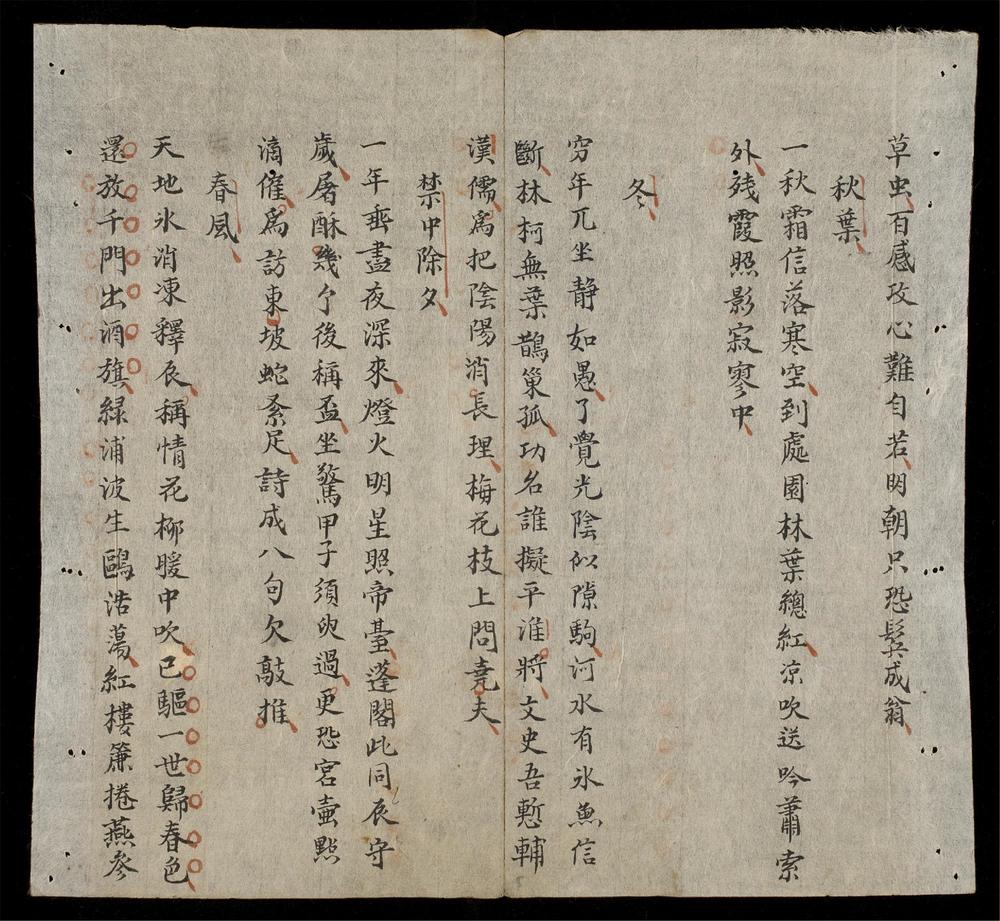 草虫百感攻心難自若明朝只恐鬂成翁
秋葉
一秋霜信落寒空到處園林葉總紅凉吹送吟蕭索
外残霞照影寂寥中
冬
穷年兀坐静如愚了覺光陰似隙駒河水有氷魚信
斷林柯無葉鵲巢孤功名誰擬平淮將文史吾慙輔
漢儒爲把陰陽消長理梅花枝上問堯夫
禁中除夕
一年垂盡夜深來燈火明星照帝臺蓬閣此同辰守
歲屠酥幾个後稱盃坐驚甲子須臾過更恐宮壷點
滴催爲訪東坡蛇系足詩成八句欠敲推
春風
天地氷消凍釋辰稱情花柳暖中吹已驅一世歸春色
還放千門出酒旗緑浦波生鷗浩蕩紅樓簾捲燕參